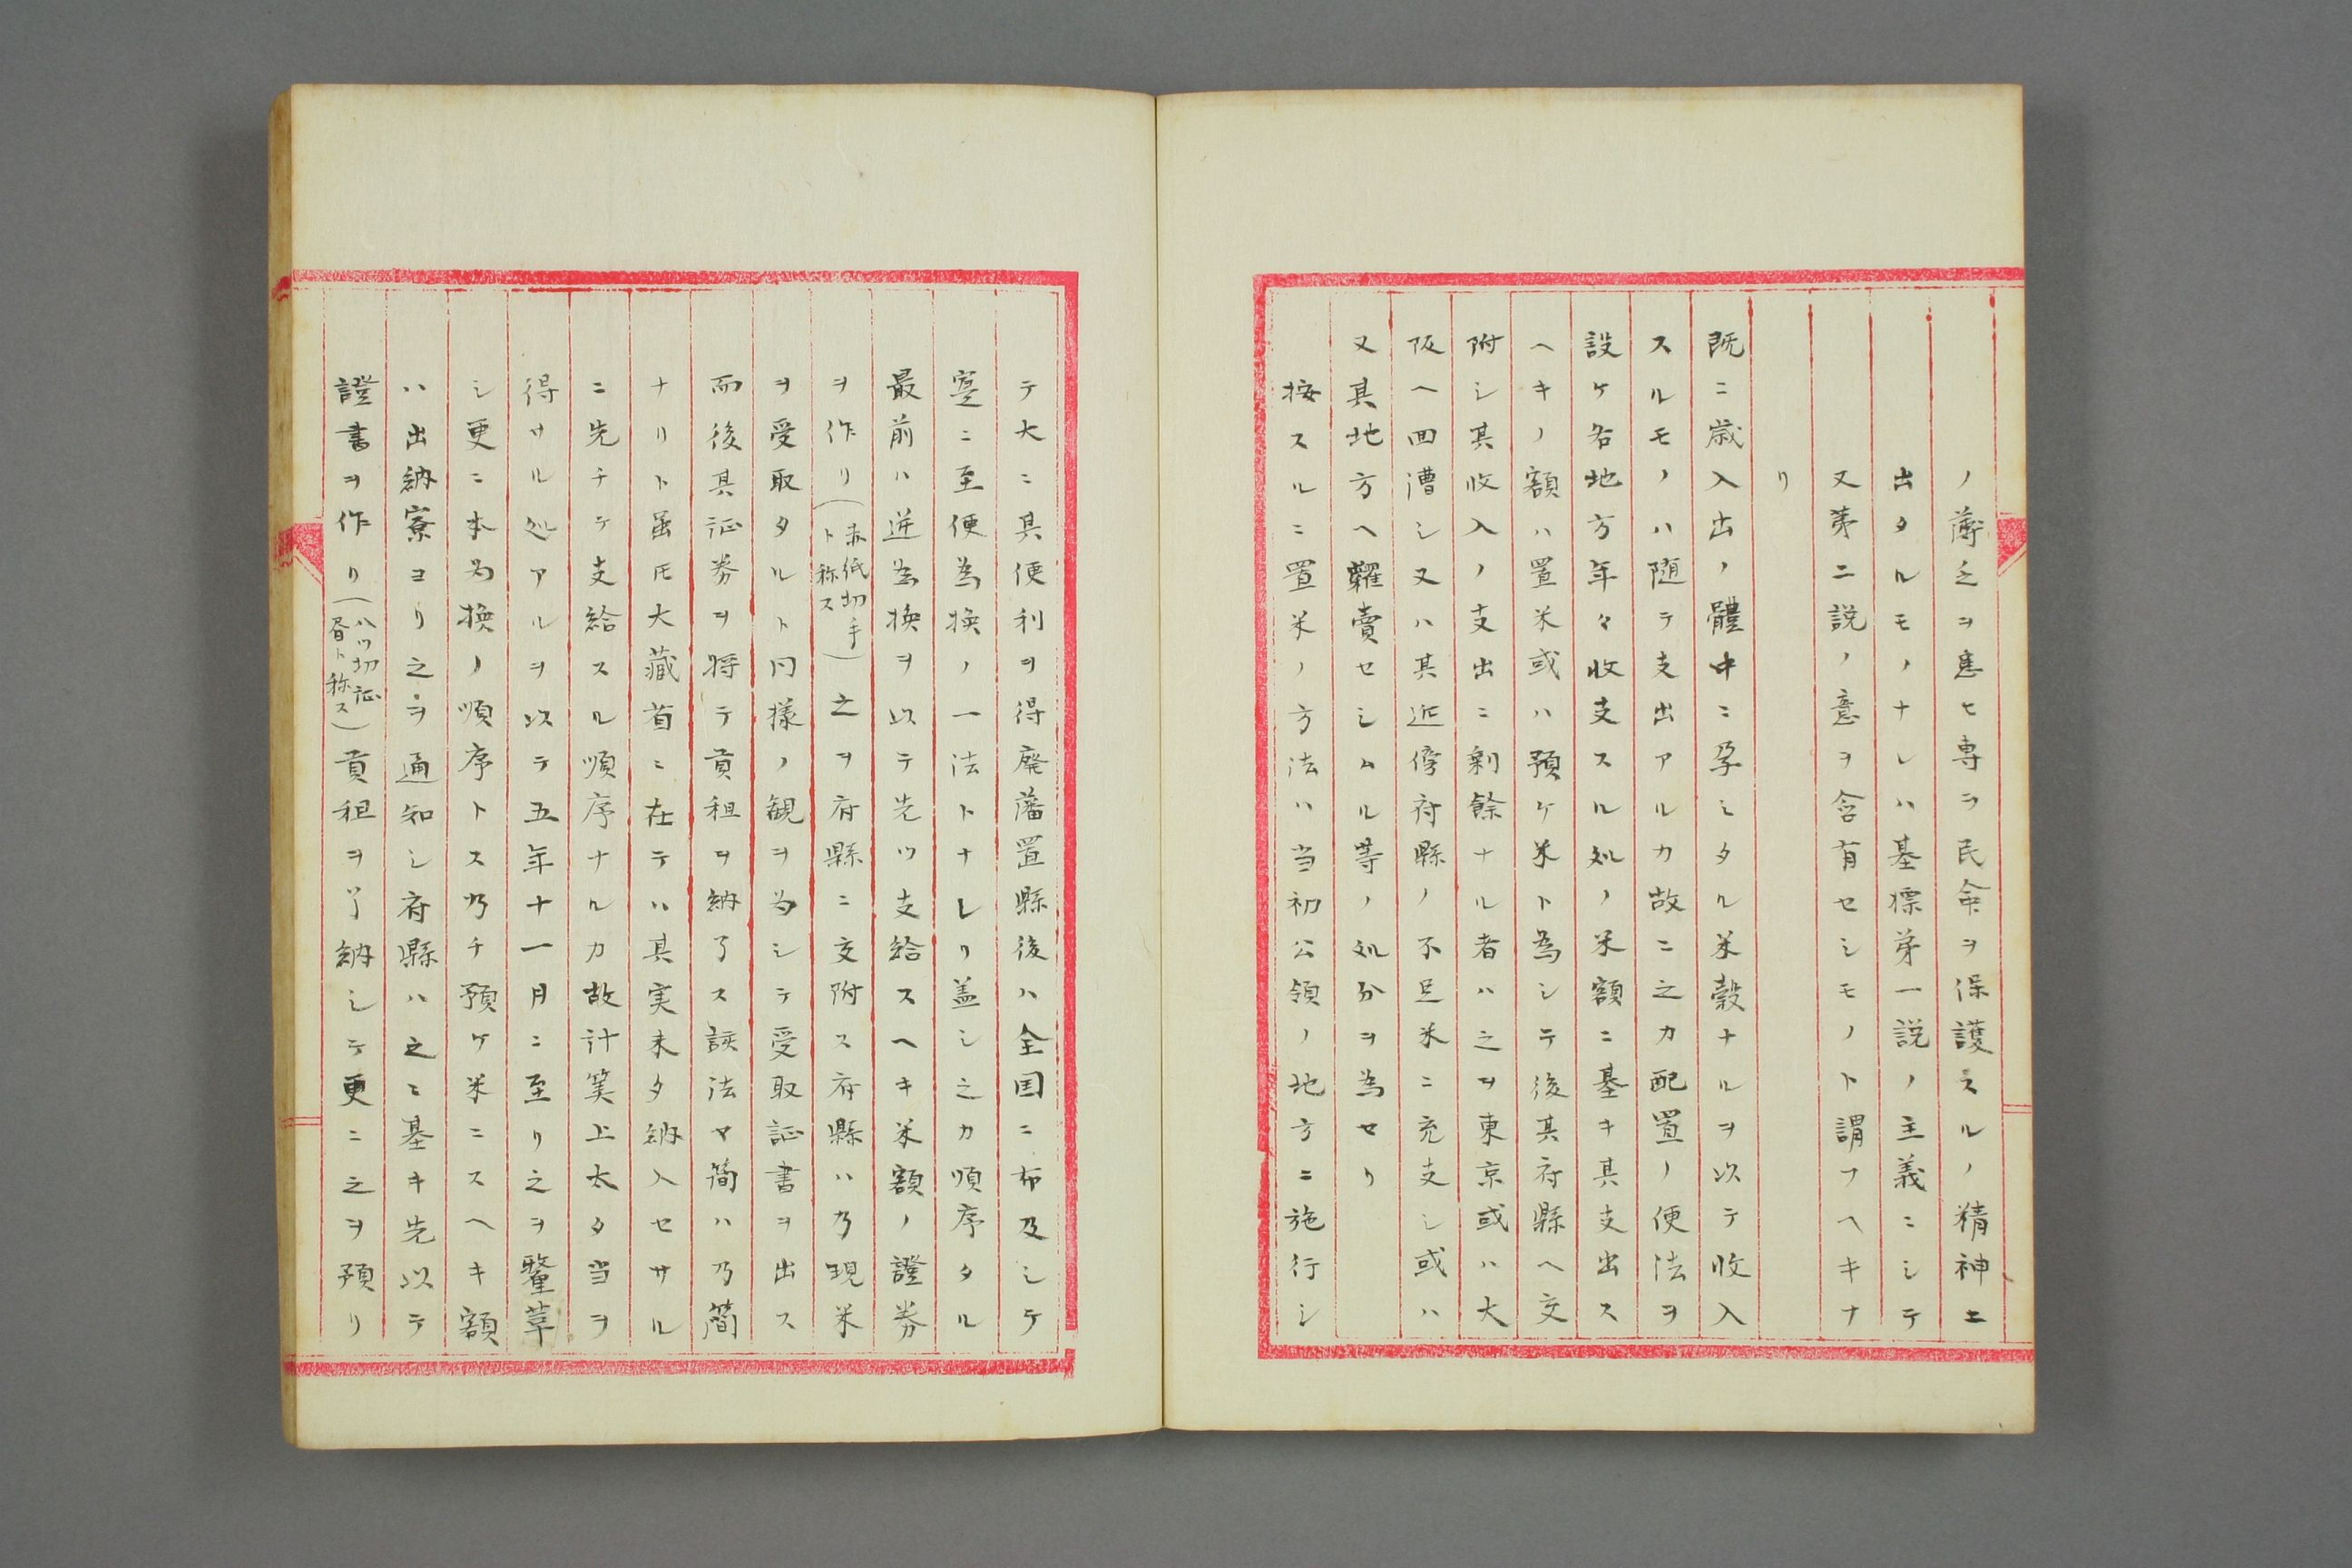 ノ薄乏ヲ恵ヒ専ラ民命ヲ保護スルノ精神ニ
出タルモノナレハ基標第一説ノ主義ニシテ
又第二説ノ意ヲ含有セシモノト謂フヘキナ
リ
既ニ歳入出ノ體中ニ孕シタル米穀ナルヲ以テ收入
スルモノハ随テ支出アルカ故ニ之カ配置ノ便法ヲ
設ケ各地方年々收支スル処ノ米額ニ基キ其支出ス
ヘキノ額ハ置米或ハ預ケ米ト為シテ後其府縣ヘ交
附シ其收入ノ支出ニ剰餘ナル者ハ之ヲ東京或ハ大
阪ヘ回漕シ又ハ其近傍府縣ノ不足米ニ充支シ或ハ
又其地方ヘ糶賣セシムル等ノ処分ヲ為セリ
按スルニ置米ノ方法ハ当初公領ノ地方ニ施行シ
テ大ニ其便利ヲ得廃藩置縣後ハ全国ニ布及シテ
寔ニ至便為換ノ一法トナレリ盖シ之カ順序タル
最前ハ逆為換ヲ以テ先ツ支給スヘキ米額ノ證券
ヲ作リ(赤紙切手ト称ス)之ヲ府縣ニ交附ス府縣ハ乃現米
ヲ受取タルト同様ノ観ヲ為シテ受取証書ヲ出ス
而後其証券ヲ将テ貢租ヲ納了ス該法ヤ簡ハ乃簡
ナリト虽𪜈大藏省ニ在テハ其実未タ納入セサル
ニ先チテ支給スル順序ナルカ故計筭上太タ当ヲ
得サル処アルヲ以テ五年十一月ニ至リ之ヲ釐革
シ更ニ本為換ノ順序トス乃チ預ケ米ニスヘキ額
ハ出納寮ヨリ之ヲ通知シ府縣ハ之ニ基キ先以テ
證書ヲ作リ(八ツ切証昏ト称ス)貢租ヲ納シテ更ニ之ヲ預リ